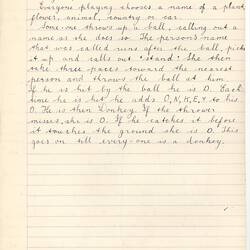 Everyone playing chooses a name of a plant,
flower, animal, country or car.
Some one throws up a ball, calling out a
name as she does so. The person's name
that was called runs after the ball, picks
it up and calls out "stand". She then
take three paces toward the nearest
person and throws the ball at him.
If he is hit by the ball he is D. Each
time he is hit he adds O, N, K, E, Y to his
D. He is then Donkey. If the thrower
misses, she is D. If he catches it before
it touches the ground she is D. This
goes on till every-one is a donkey.